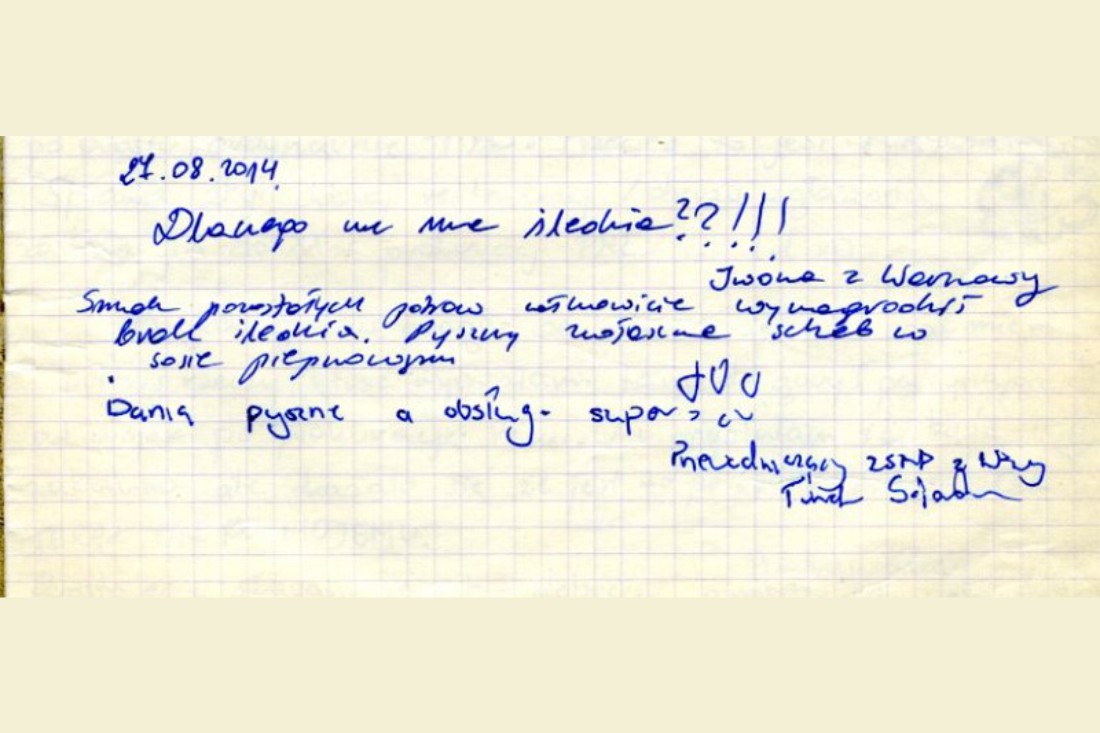 27.08.2014
Dlaczego nie ma śledzia??!!!
Iwona z Warszawy
Smak pozostałych potraw całkowicie wynagrodził
brak śledzia. Pyszny schab w
sosie pieprzowym
Dania pyszne a obsług- super
Przewodniczący z